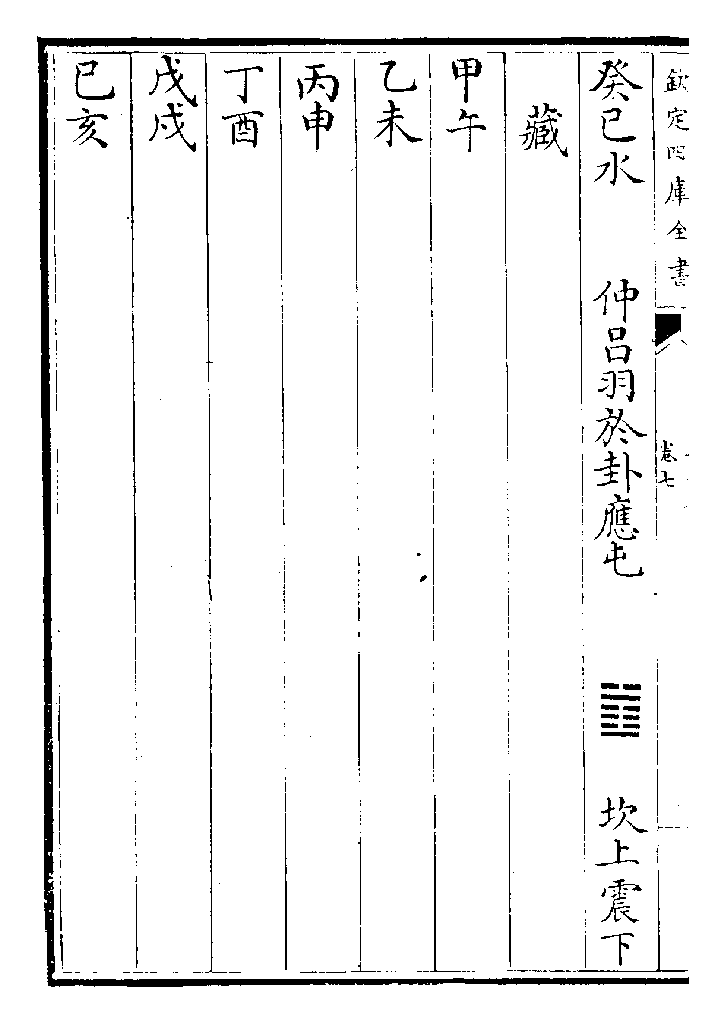 欽定四庫全書 卷七
癸巳水 仲呂羽於卦應屯 ䷂ 坎上震下
藏
甲午
乙未
丙申
丁酉
戊戌
己亥